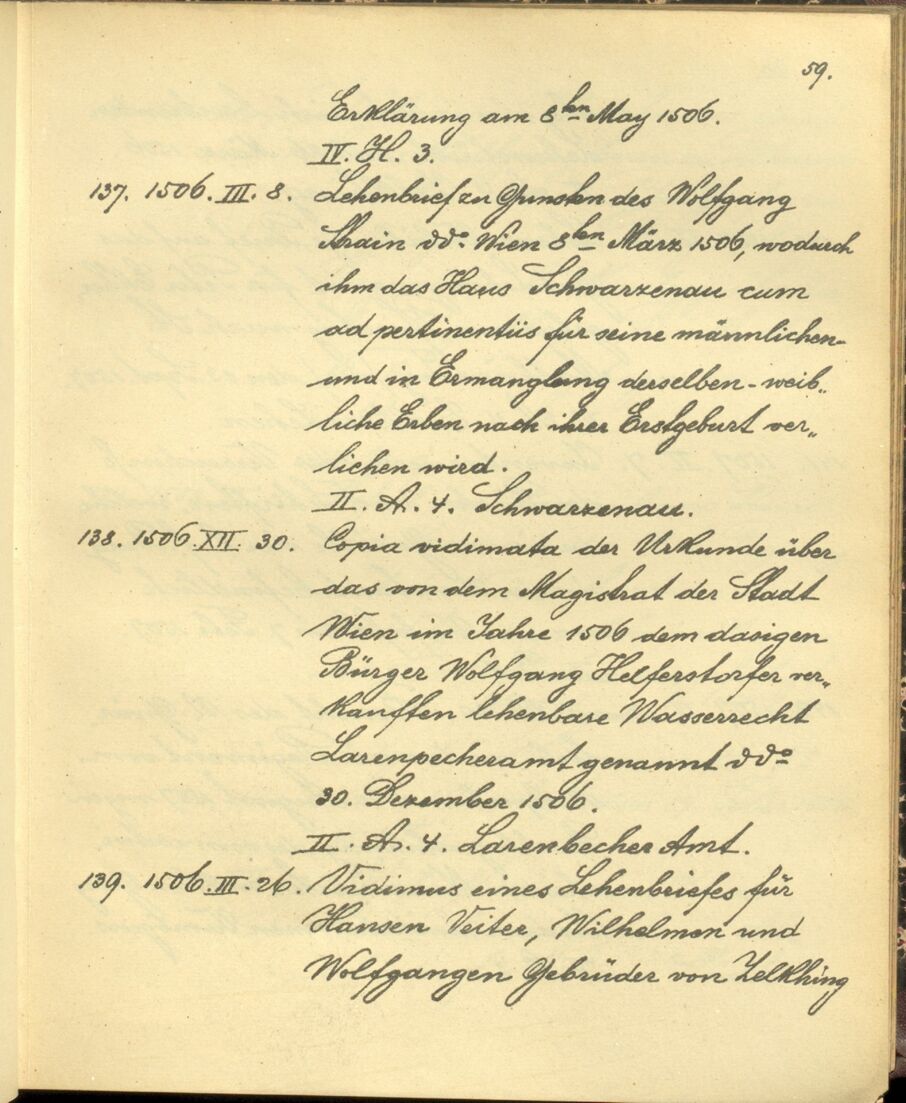 59.
Erklärung am 8ten May 1506.
IV. H. 3.
137. 1506. III. 8. Lehenbrief zu Gunsten des Wolfgang
Strain ddo. Wien 8ten März 1506, wodurch
ihm das Haus Schwarzenau cum
ad pertinentiis für seine männlichen-
und in Ermanglung derselben - weib„
liche Erben nach ihrer Erstgeburt ver„
lichen wird.
II. A. 4. Schwarzenau.
138. 1506. XII. 30. Copia vidimata der Urkunde über
das von dem Magistrat der Stadt
Wien im Jahre 1506 dem dasigen
Bürger Wolfgang Helferstorfer ver„
kauften lehenbare Wasserrecht
Larenpecheramt genannt ddo
30. Dezember 1506.
II. A. 4. Larenbecher Amt.
139. 1506. III. 26. Vidimus eines Lehenbriefes für
Hansen Veiter, Wilhelmen und
Wolfgangen Gebrüder von Zelkhing